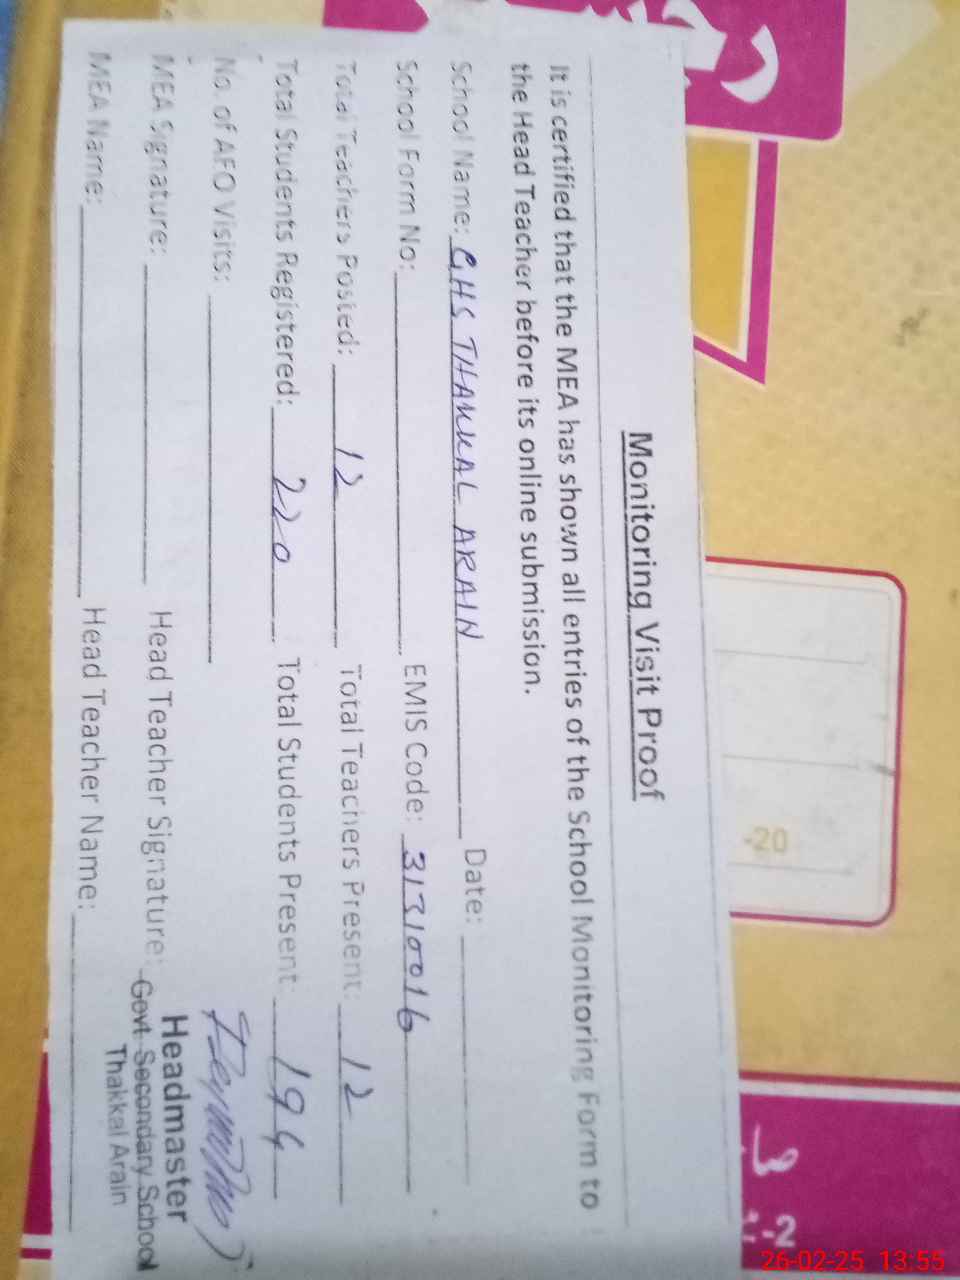 Monitoring Visit Proof
It is certified that the MEA has shown all entries of the School Monitoring Form to
the Head Teacher before its online submission.
School Name: GHS THAKKAL ARAIN Date:
School Form No: EMIS Code: 31310016
Total Teachers Posted: 12 Total Teachers Present: 12
Total Students Registered: 220 Total Students Present: 194
No. of AEO Visits:
MEA Signature: Head Teacher Signature:
MEA Name: Head Teacher Name:
Headmaster
Govt. Secondary School
Thakkal Arain
-20
-2
26-02-25 13:55